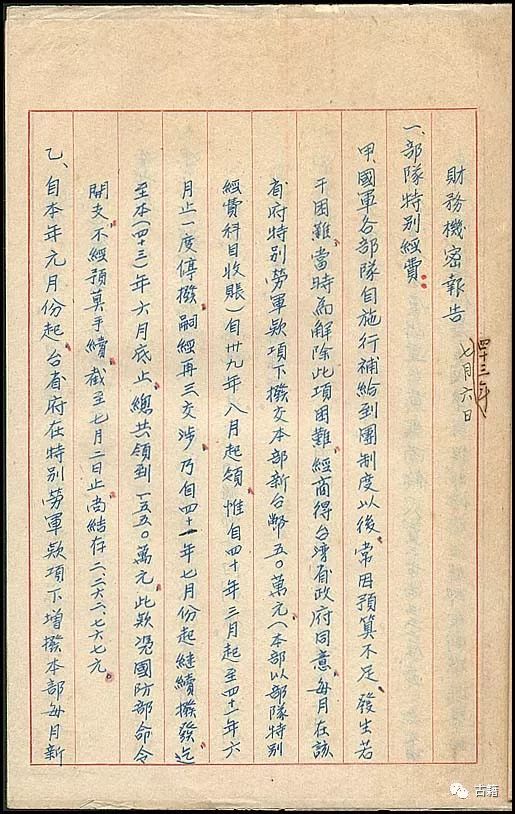 財務機密報告
四十三年
七月六日
一、部隊特別經費：
甲、國軍各部隊自施行補給到團制度以後，常因預算不足，發生若
干困難，當時為解除此項困難，經商得台灣省政府同意，每月在該
省府特別勞軍款項下撥交本部新台幣五〇萬元（本部以部隊特別
經費科目收賬）自卅九年八月起領，惟自四十年三月起至四十一年六
月止一度停撥，嗣經再三交涉，乃自四十一年七月份起繼續撥發，迄
至本（四十三）年六月底止，總共領到一五五〇萬元，此款憑國防部命令
開支，不經預算手續，截至七月二日止尚結存二、二六二、七六七元。
乙、自本年元月份起，台省府在特別勞軍款項下增撥本部每月新
古籍